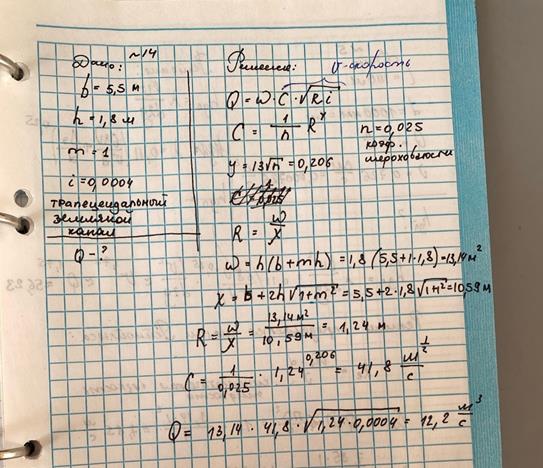 №14
Дано:
b = 5,5 м
h = 1,8 м
m = 1
i = 0,0004
трапецеидальный
земляной
канал
Q - ?
Решение:
v-скорость
Q = ω · C · √Ri
C = 1/n R^y
n = 0,025
коэф.
шероховатости
y = 1,3√n = 0,206
R = ω/χ
ω = h(b + mh) = 1,8 (5,5 + 1 · 1,8) = 13,14 м²
χ = b + 2h √1+m² = 5,5 + 2 · 1,8 √1+1² = 10,59 м
R = ω/χ = 13,14 м² / 10,59 м = 1,24 м
C = 1/0,025 · 1,24^0,206 = 41,8 м^1/2 / с
Q = 13,14 · 41,8 · √1,24 · 0,0004 = 12,2 м³/с